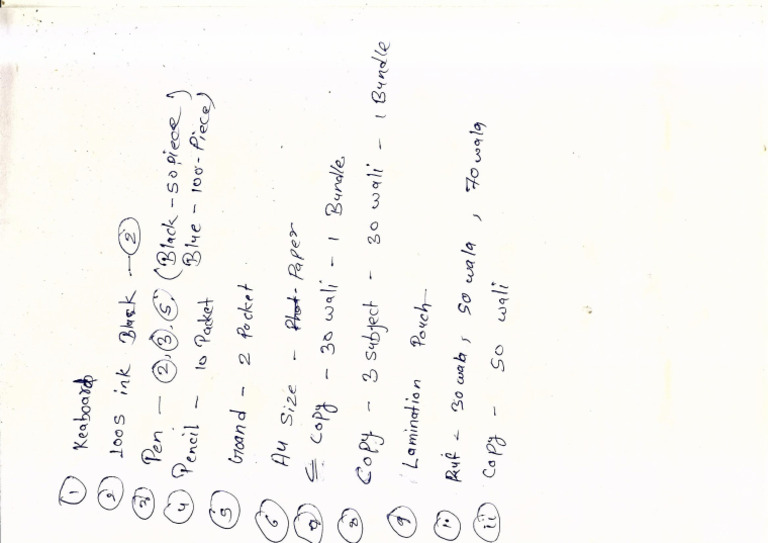 ① Keaboard
② 1005 ink Black - ②
③ Pen - ②,③,⑤, (Black - 50 piece)
Blue - 100 - Piece)
④ Pencil - 10 Packet
⑤ - 2 Packet
⑥ A4 Size - Paper
⑦ Copy - 30 wali - 1 Bundle
⑧ Copy - 3 Subject - 30 wali - 1 Bundle
⑨ Lamination Pouch
- 30 wala, 50 wala, 70 wala
Copy - 50 wali